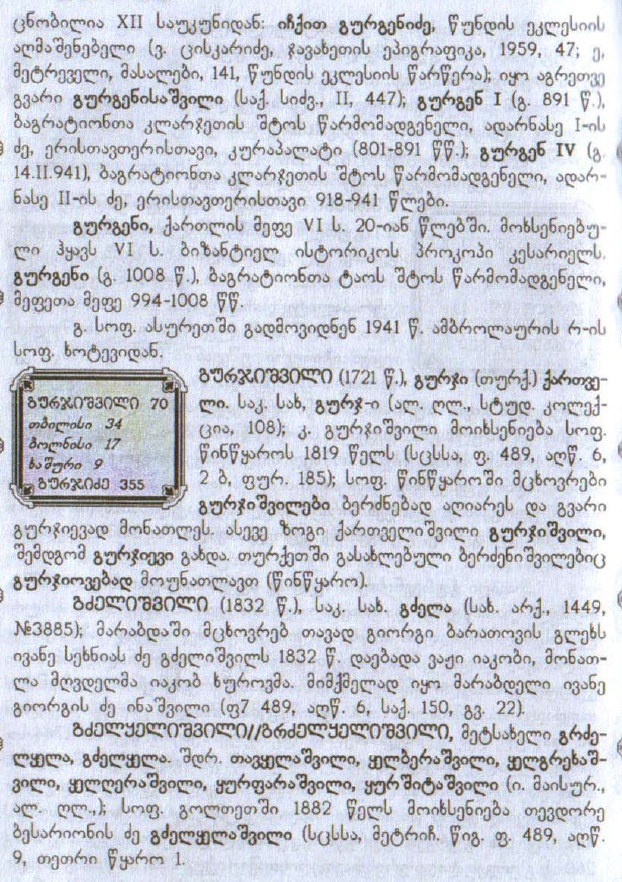 ცნობილია XII საუკუნიდან: იჩქით გურგენიძე, წუნდის ეკლესიის
აღმაშენებელი (ვ. ცისკარიძე, ჯავახეთის ეპიგრაფიკა, 1959, 47; ე,
მეტრეველი, მასალები, 141, წუნდის ეკლესიის წარწერა); იყო აგრეთვე
გვარი გურგენისაშვილი (საქ. სიძვ., II, 447); გურგენ I (გ. 891 წ.),
ბაგრატიონთა კლარჯეთის შტოს წარმომადგენელი, ადარნასე I-ის
ძე, ერისთავთერისთავი, კურაპალატი (801-891 წწ.); გურგენ IV (გ.
14.II.941), ბაგრატიონთა კლარჯეთის შტოს წარმომადგენელი, ადარ-
ნასე II-ის ძე, ერისთავთერისთავი 918-941 წლები.
გურგენი, ქართლის მეფე VI ს. 20-იან წლებში. მოხსენიებუ-
ლი ჰყავს VI ს. ბიზანტიელ ისტორიკოს პროკოპი კესარიელს.
გურგენი (გ. 1008 წ.), ბაგრატიონთა ტაოს შტოს წარმომადგენელი,
მეფეთა მეფე 994-1008 წწ.
გ. სოფ. ასურეთში გადმოვიდნენ 1941 წ. ამბროლაურის რ-ის
სოფ. ხოტევიდან.
გურჯიშვილი 70
თბილისი 34
ბოლნისი 17
ხაშური 9
გურჯიძე 355
გურჯიშვილი (1721 წ.), გურჯი (თურქ.) ქართვე-
ლი. საკ. სახ, გურჯ-ი (ალ. ღლ., სტუდ. კოლექ-
ცია, 108); კ. გურჯიშვილი მოიხსენიება სოფ.
წინწყაროს 1819 წელს (სცსსა, ფ. 489, აღწ. 6,
2 ბ, ფურ. 185); სოფ. წინწყაროში მცხოვრები
გურჯიშვილები ბერძნებად აღიარეს და გვარი
გურჯიევად მონათლეს. ასევე ზოგი ქართველიშვილი გურჯიშვილი,
შემდგომ გურჯიევი გახდა. თურქეთში გასახლებული ბერძენიშვილებიც
გურჯიოვებად მოუნათლავთ (წინწყარო).
გძელიშვილი (1832 წ.), საკ. სახ. გძელა (სახ. არქ., 1449,
№3885); მარაბდაში მცხოვრებ თავად გიორგი ბარათოვის გლეხს
ივანე სეხნიას ძე გძელიშვილს 1832 წ. დაებადა ვაჟი იაკობი, მონათ-
ლა მღვდელმა იაკობ ხუროვმა. მიმქმელად იყო მარაბდელი ივანე
გიორგის ძე ინაშვილი (ფ7 489, აღწ. 6, საქ. 150, გვ. 22).
გძელყელიშვილი//გრძელყელიშვილი, მეტსახელი გრძე-
ლყელა, გძელყელა. შდრ. თავყელაშვილი, ყელბერაშვილი, ყელგრეხაშ-
ვილი, ყელღერაშვილი, ყურფარაშვილი, ყურშიტაშვილი (ი. მაისურ.,
ალ. ღლ.,); სოფ. გოლთეთში 1882 წელს მოიხსენიება თევდორე
ბესარიონის ძე გძელყელაშვილი (სცსსა, მეტრიჩ. წიგ. ფ. 489, აღწ.
9, თეთრი წყარო 1.